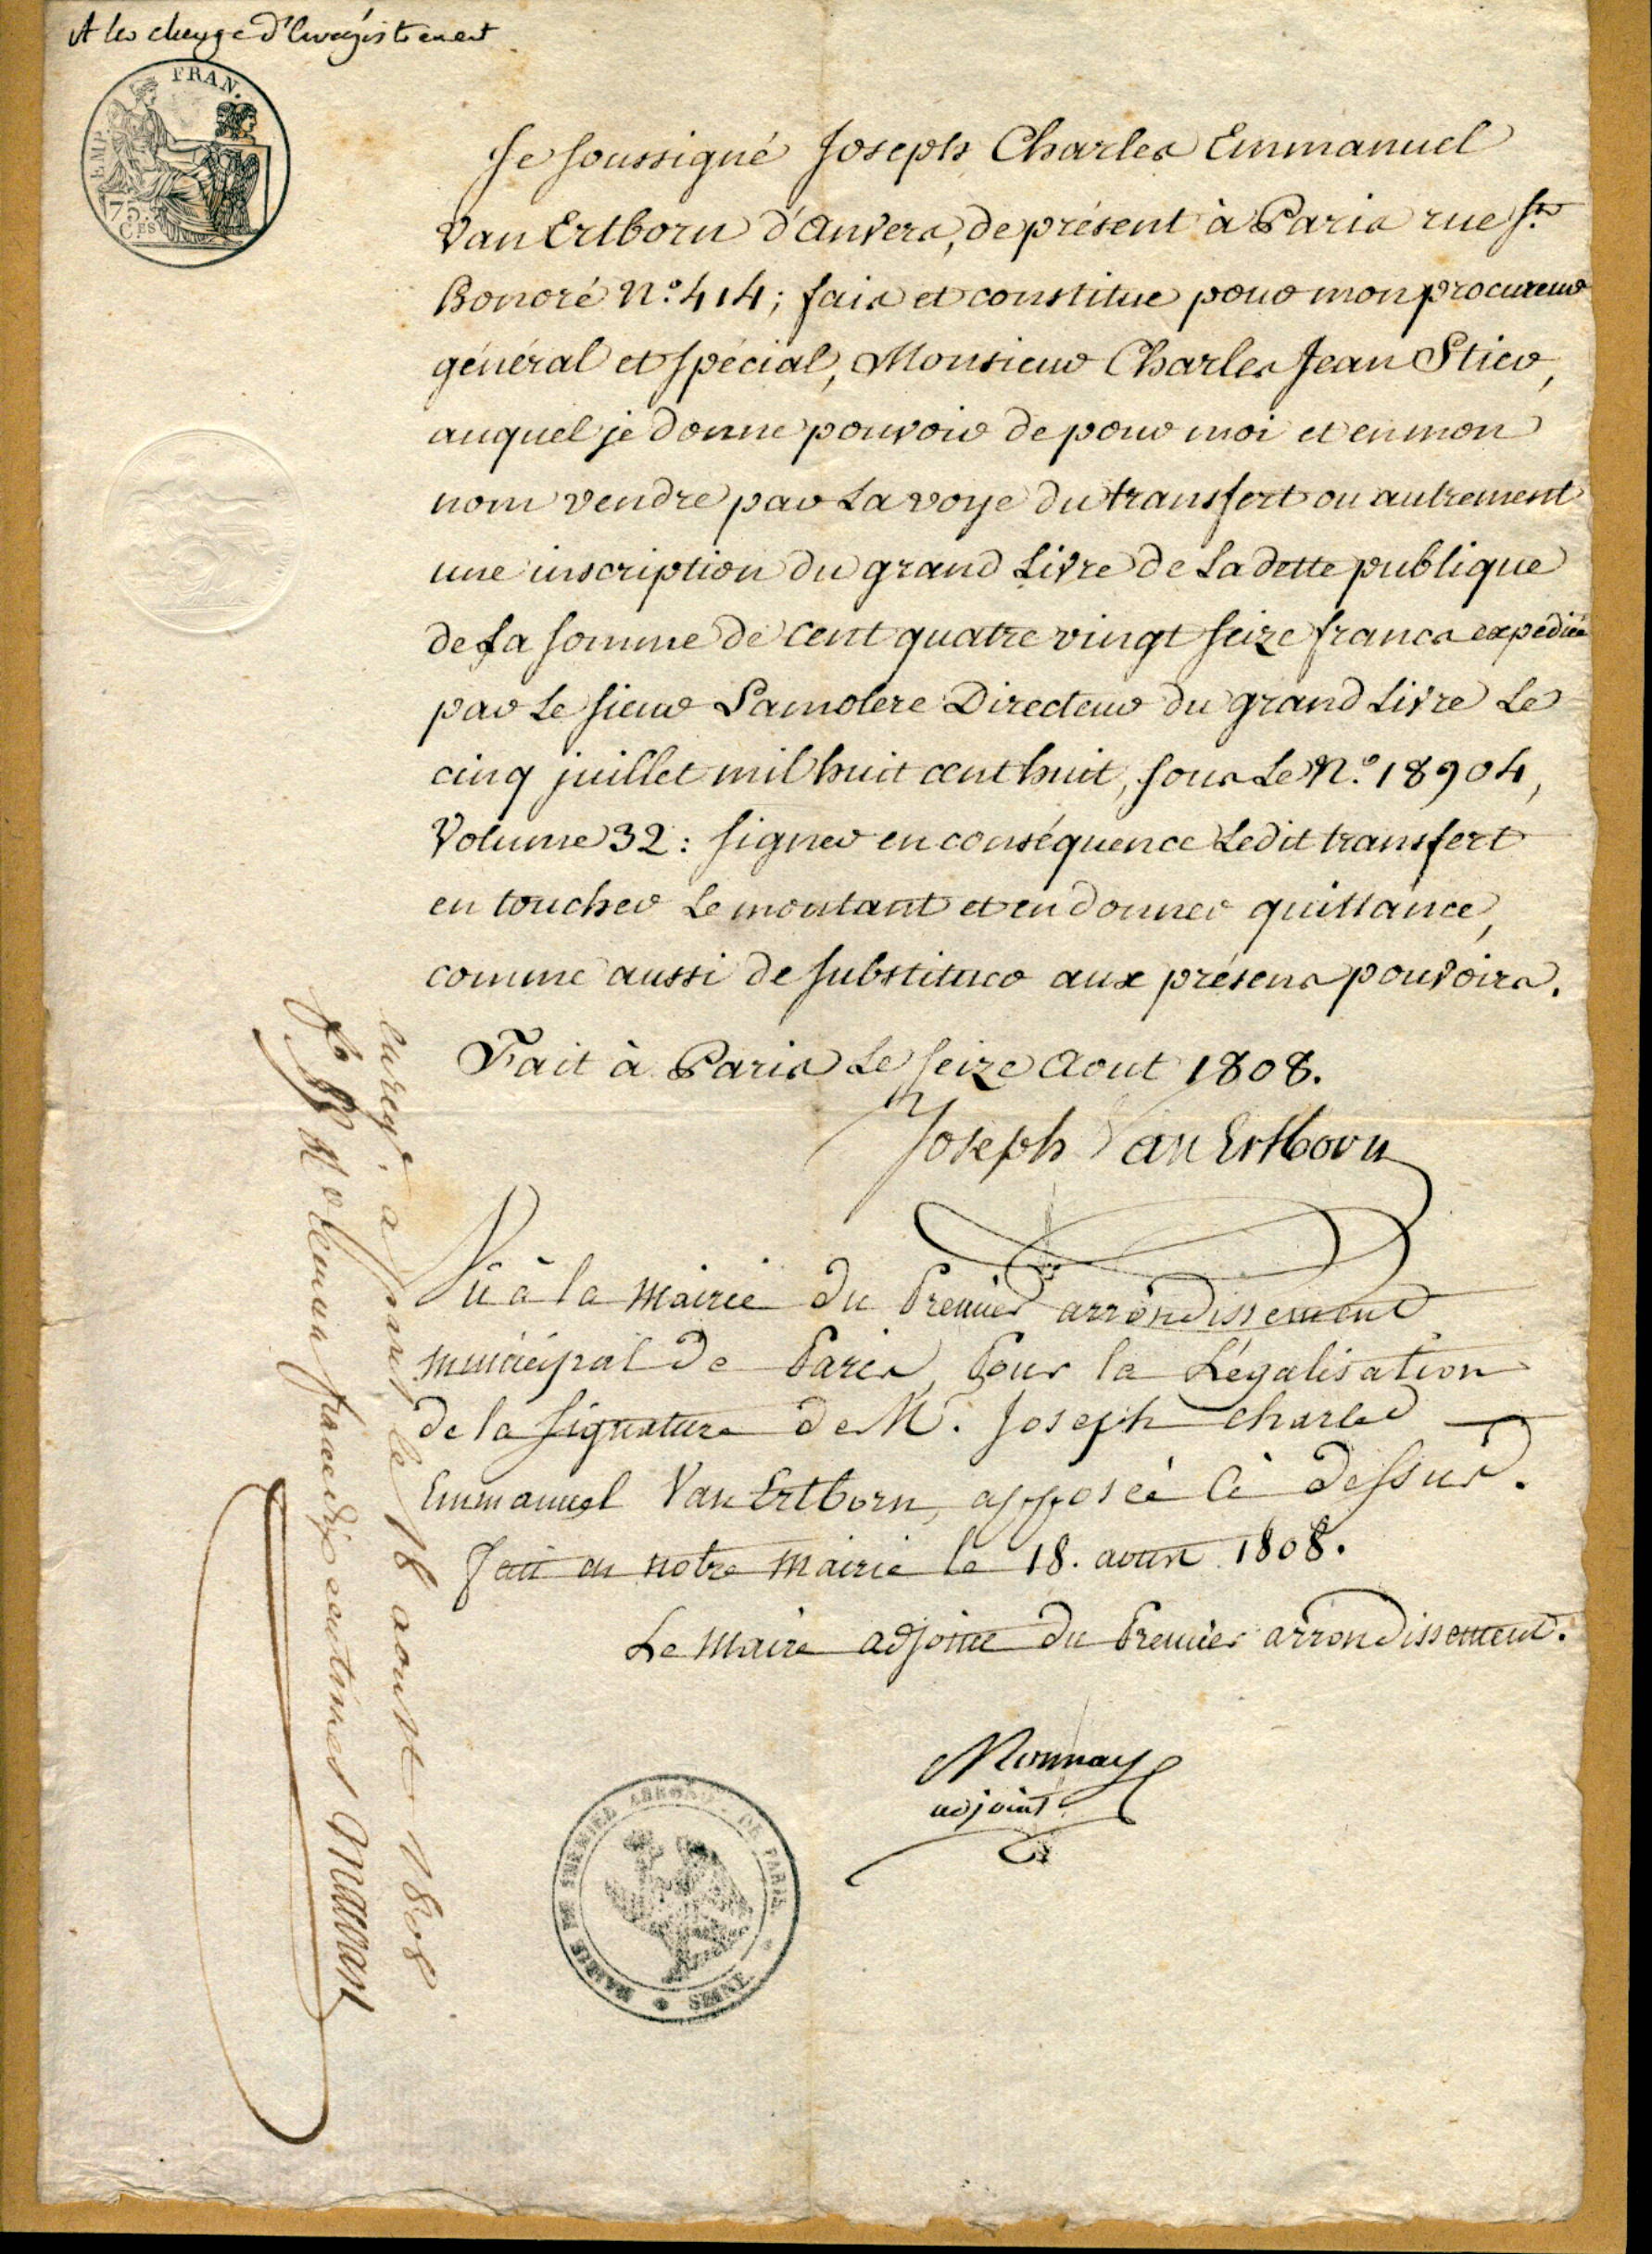 A la charge d'Enregistrement
EMP. FRAN.
75.
C.ES
Je soussigné Joseph Charles Emmanuel
Van Ertborn d'Anvers, de présent à Paris rue St.
honoré N.o 414; fais et constitue pour mon procureur
général et spécial, Monsieur Charles Jean Stier,
auquel je donne pouvoir de pour moi et en mon
nom vendre par la voye du transfert ou autrement
une inscription du grand Livre de la dette publique
de la somme de cent quatre vingt seize francs expédiée
par le sieur Lamolere Directeur du grand Livre le
cinq juillet mil huit cent huit, sous le N.o 18904,
Volume 32: signer en conséquence ledit transfert
en toucher le montant et en donner quittance,
comme aussi de substituer aux présens pouvoirs.
Fait à Paris le seize Aout 1808.
Joseph Van Ertborn
Vu à la Mairie du Premier arrondissement
municipal de Paris, Pour la Légalisation
de la signature de M. Joseph Charles
Emmanuel Van Ertborn, apposée ci dessus.
fait en notre Mairie le 18. aoust 1808.
Le Maire adjoint du Premier arrondissement.
Monnay
adjoint
MAIRIE DU PREMIER ARROND.T DE PARIS * SEINE *
Enregé. à Paris le 18 aoust 1808
franc dix centimes